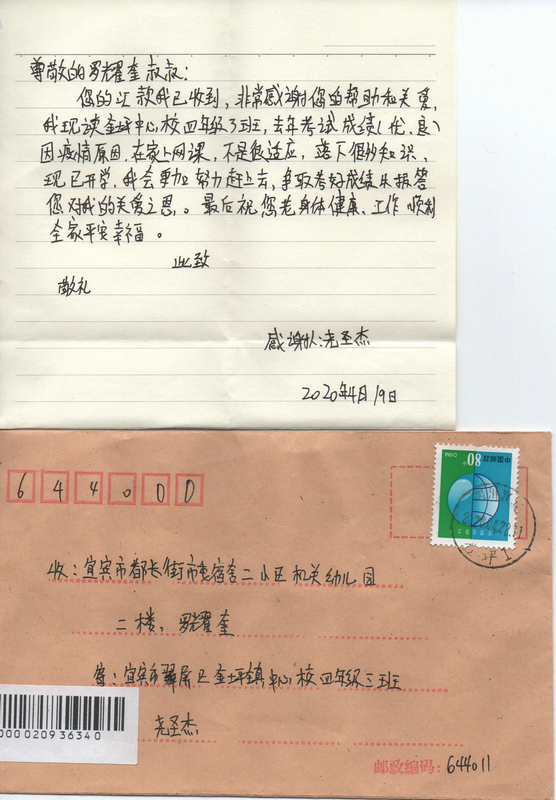 尊敬的罗耀奎叔叔：
您的汇款我已收到，非常感谢您的帮助和关爱，
我现读金坪中心校四年级3班，去年考试成绩(优、良)
因疫情原因，在家上网课，不是很适应，落下很多知识，
现已开学，我会更加努力赶上去，争取考好成绩来报答
您对我的关爱之恩。最后祝您老身体健康、工作顺利
全家平安幸福。
此致
敬礼
感谢人：尧圣杰
2020年4月19日
644000
中国邮政
CHINA
80
收：宜宾市都长街市委宿舍二小区机关幼儿园
二楼，罗耀奎
寄：宜宾市翠屏区金坪镇中心校四年级三班
尧圣杰
000020936340
邮政编码：644011